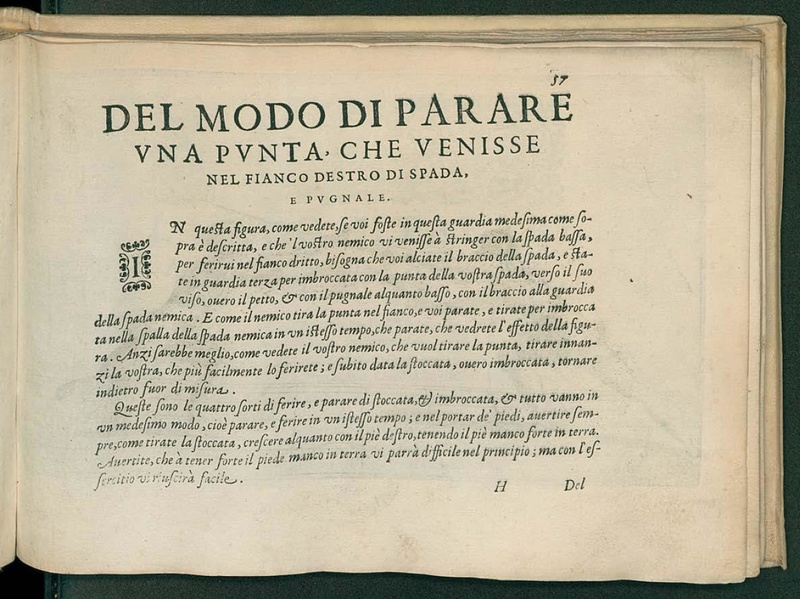 57
DEL MODO DI PARARE
VNA PVNTA, CHE VENISSE
NEL FIANCO DESTRO DI SPADA,
E PVGNALE.
IN questa figura, come vedete, se voi foste in questa guardia medesima come so-
pra è descritta, e che 'l vostro nemico vi venisse à stringer con la spada bassa,
per ferirui nel fianco dritto, bisogna che voi alciate il braccio della spada, e sta-
te in guardia terza per imbroccata con la punta della vostra spada, verso il suo
viso, ouero il petto, & con il pugnale alquanto basso, con il braccio alla guardia
della spada nemica. E come il nemico tira la punta nel fianco, e voi parate, e tirate per imbrocca
ta nella spalla della spada nemica in vn istesso tempo, che parate, che vedrete l'effetto della figu-
ra. Anzi sarebbe meglio, come vedete il vostro nemico, che vuol tirare la punta, tirare innan-
zi la vostra, che più facilmente lo ferirete; e subito data la stoccata, ouero imbroccata, tornare
indietro fuor di misura.
Queste sono le quattro sorti di ferire, e parare di stoccata, & imbroccata, & tutto vanno in
vn medesimo modo, cioè parare, e ferire in vn istesso tempo; e nel portar de' piedi, auertire sem-
pre, come tirate la stoccata, crescere alquanto con il piè destro, tenendo il piè manco forte in terra.
Auertite, che à tener forte il piede manco in terra vi parrà difficile nel principio; ma con l'es-
sercitio vi riuscirà facile.
H Del